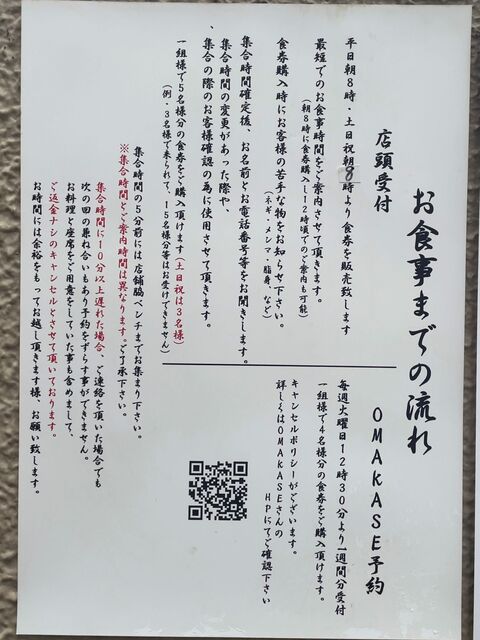 お食事までの流れ
店頭受付
平日朝8時・土日祝朝8時より食券を販売致します
最短でのお食事時間をご案内させて頂きます。
(朝8時に食券購入し12時頃でのご案内も可能)
食券購入時にお客様の苦手な物をお知らせ下さい。
(ネギ・メンマ・脂身、など)
集合時間確定後、お名前とお電話番号等をお聞きします。
集合時間の変更があった際や、
集合の際のお客様確認の為に使用させて頂きます。
一組様で5名様分の食券をご購入頂けます(土日祝は3名様)
(例・3名様で来られて、15名様分等はお受けできません)
OMAKASE予約
毎週火曜日12時30分より1週間分受付
一組様で4名様分の食券をご購入頂けます。
キャンセルポリシーがございます。
詳しくはOMAKASEさんの
HPにてご確認下さい
集合時間の5分前には店舗脇ベンチまでお集まり下さい。
※集合時間とご案内時間は異なります。ご了承下さい。
集合時間に10分以上遅れた場合、ご連絡を頂いた場合でも
次の回の兼ね合いもあり予約をずらす事ができません。
お料理と座席をご用意をしていた事も含めまして、
ご返金ナシのキャンセルとさせて頂いております。
お時間には余裕をもってお越し頂きます様、お願い致します。